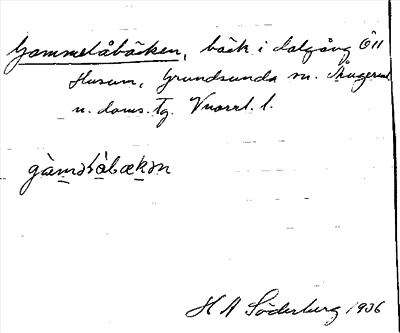 Gammelåbäcken, bäck i dalgång Ö11
Husum, Grundsunda sn. Ångerml
n. doms. tg. Vnorrl. l.
H A Söderberg 1936